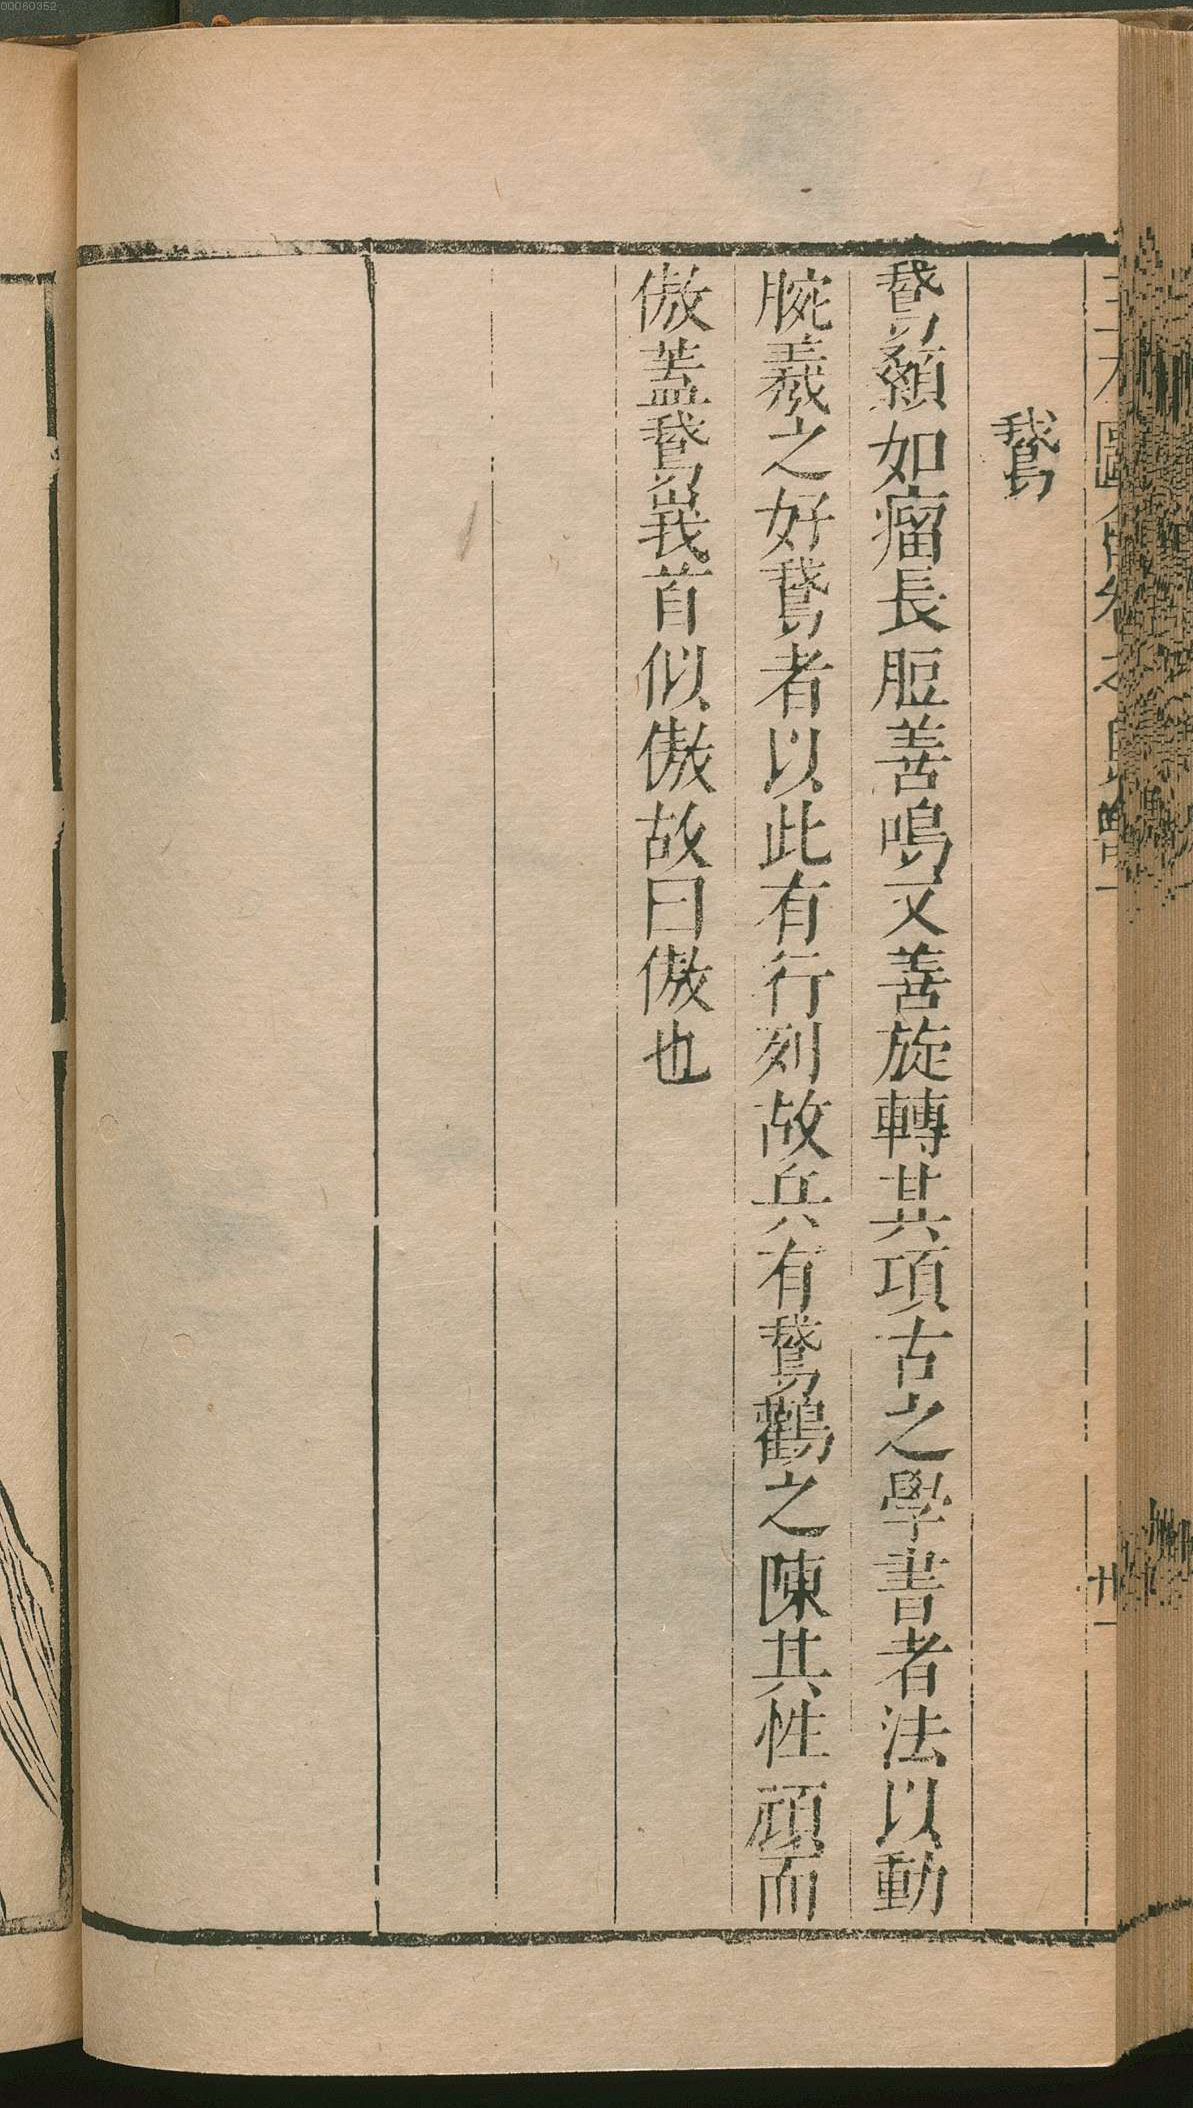 鵝
鵝顙如瘤長脰善鳴又善旋轉其項古之學書者法以動
腕羲之好鵝者以此有行列故兵有鵝鸛之陳其性頑而
傲蓋鵝峩首似傲故曰傲也
廿一
00060352